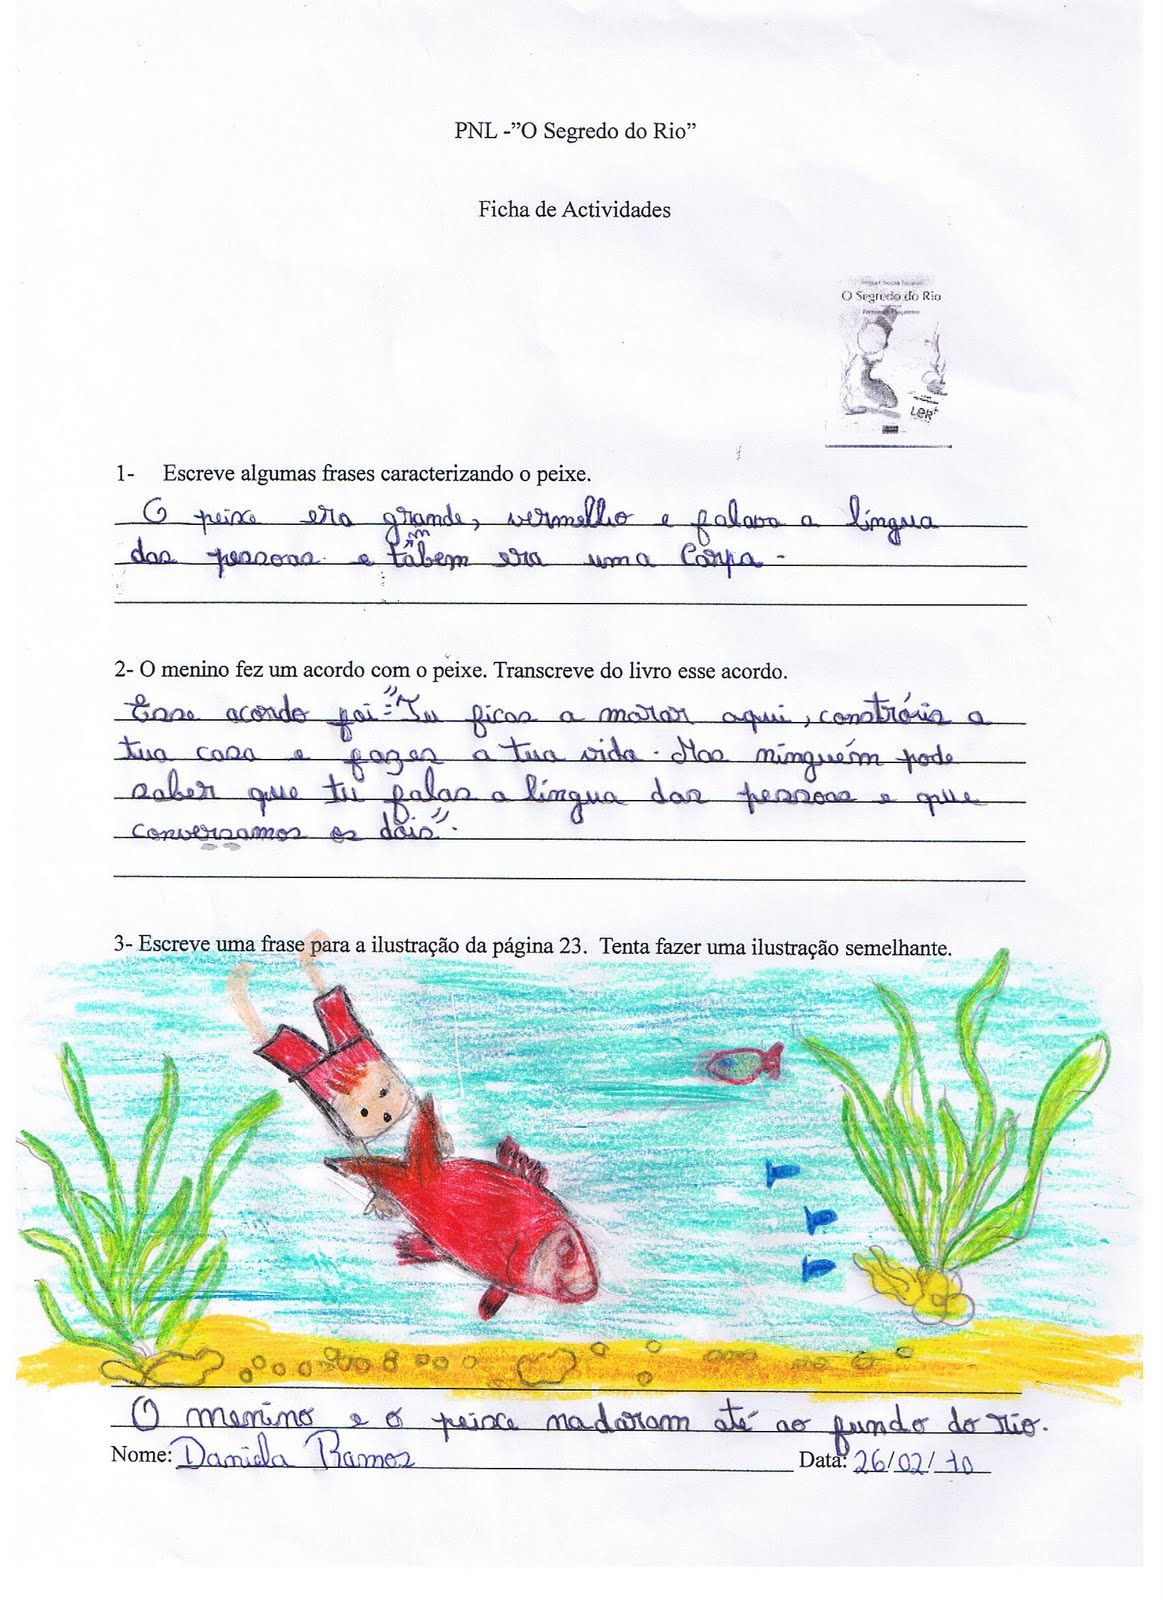 PNL -”O Segredo do Rio”
Ficha de Actividades
O Segredo do Rio
LER+
1- Escreve algumas frases caracterizando o peixe.
O peixe era grande, vermelho e falava a língua
das pessoas. e támbem era uma Carpa.
2- O menino fez um acordo com o peixe. Transcreve do livro esse acordo.
Esse acordo foi: "Tu ficas a morar aqui, constróis a
tua casa e fazes a tua vida. Mas ninguém pode
saber que tu falas a língua das pessoas e que
conversamos os dois".
3- Escreve uma frase para a ilustração da página 23. Tenta fazer uma ilustração semelhante.
O menino e o peixe nadaram até ao fundo do rio.
Nome: Daniela Ramos Data: 26/02/10